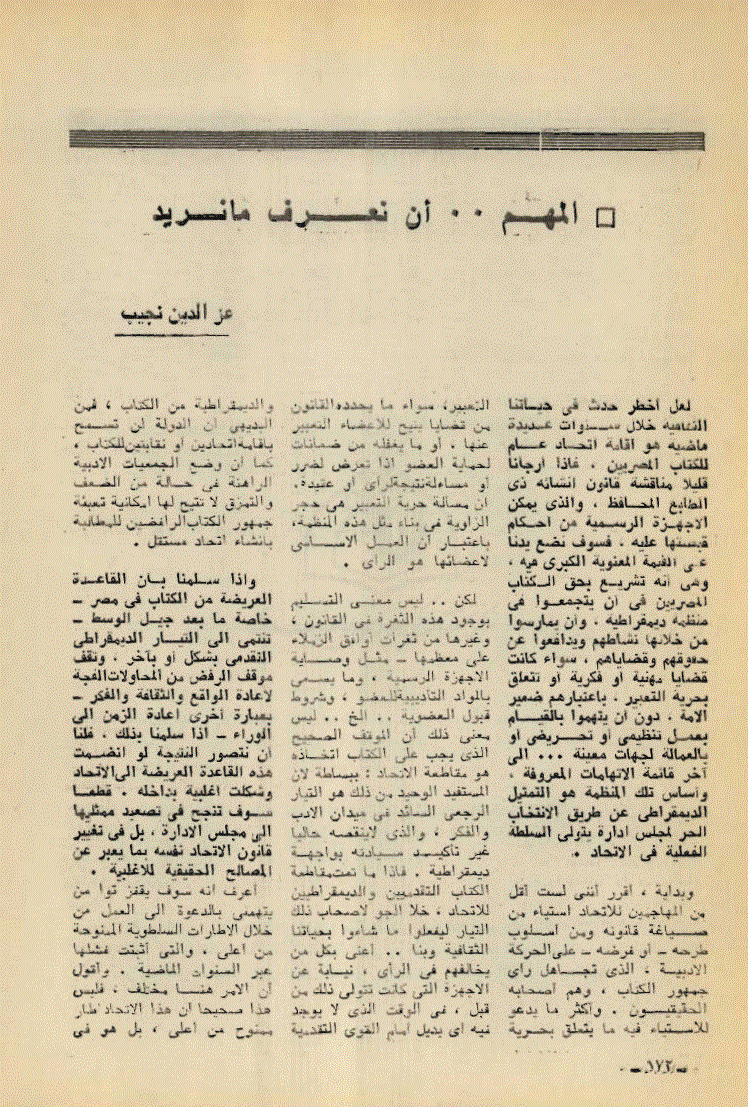 □ المهم ٠٠ أن نعرف مانريد
عز الدين نجيب
لعل اخطر حدث فى حياتنا
الثقافية خلال سنوات عديدة
ماضية هو اقامة اتحاد عام
للكتاب المصريين . فاذا ارجأنا
قليلا مناقشة قانون انشائه ذى
الطابع المحافظ ، والذى يمكن
الاجهزة الرسمية من احكام
قبضتها عليه ، فسوف نضع يدنا
على القيمة المعنوية الكبرى فيه ،
وهى أنه تشريع بحق الكتاب
المصريين فى أن يتجمعوا فى
منظمة ديمقراطية . وأن يمارسوا
من خلالها نشاطهم ويدافعوا عن
حقوقهم وقضاياهم ، سواء كانت
قضايا مهنية أو فكرية أو تتعلق
بحرية التعبير . باعتبارهم ضمير
الامة . دون أن يتهموا بالقيام
بعمل تنظيمى أو تحريضى أو
بالعمالة لجهات معينة ... الى
آخر قائمة الاتهامات المعروفة .
وأساس تلك المنظمة هو التمثيل
الديمقراطى عن طريق الانتخاب
الحر لمجلس ادارة يتولى السلطة
الفعلية فى الاتحاد .
وبداية ، أقرر أننى لست أقل
من المهاجمين للاتحاد استياء من
صياغة قانونه ومن اسلوب
طرحه ـ أو فرضه ـ على الحركة
الادبية ، الذى تجاهل رأى
جمهور الكتاب ، وهم أصحابه
الحقيقيون . وأكثر ما يدعو
للاستياء فيه ما يتعلق بحرية
التعبير، سواء ما يحدده القانون
من قضايا يتيح للأعضاء التعبير
عنها . أو ما يغفله من ضمانات
لحماية العضو اذا تعرض لضرر
أو مساءلة نتيجة لرأى أو عقيدة.
ان مسألة حرية التعبير هى حجر
الزاوية فى بناء مثل هذه المنظمة،
باعتبار أن العمل الاساسى
لاعضائها هو الرأى .
لكن .. ليس معنى التسليم
بوجود هذه الثغرة فى القانون ،
وغيرها من ثغرات أوافق الزملاء
على معظمها ـ مثل وصاية
الاجهزة الرسمية ، وما يسمى
بالمواد التأديبية للعضو ، وشروط
قبول العضوية .. الخ .. ليس
معنى ذلك أن الموقف الصحيح
الذى يجب على الكتاب اتخاذه
هو مقاطعة الاتحاد : ببساطة لان
المستفيد الوحيد من ذلك هو التيار
الرجعى السائد فى ميدان الادب
والفكر ، والذى لا ينقصه حاليا
غير تأكيد سيادته بواجهة
ديمقراطية . فاذا ما تمت مقاطعة
الكتاب التقدميين والديمقراطيين
للاتحاد ، خلا الجو لاصحاب ذلك
التيار ليفعلوا ما شاءوا بحياتنا
الثقافية وبنا .. أعنى بكل من
يخالفهم فى الرأى ، نيابة عن
الاجهزة التى كانت تتولى ذلك من
قبل ، فى الوقت الذى لا يوجد
فيه أى بديل أمام القوى التقدمية
والديمقراطية من الكتاب ، فمن
البديهى أن الدولة لن تسمح
باقامة اتحادين أو نقابتين للكتاب ،
كما أن وضع الجمعيات الادبية
الراهنة فى حالة من الضعف
والتمزق لا تتيح لها امكانية تعبئة
جمهور الكتاب الرافضين للمطالبة
بانشاء اتحاد مستقل .
واذا سلمنا بأن القاعدة
العريضة من الكتاب فى مصر ـ
خاصة ما بعد جيل الوسط ـ
تنتمى الى التيار الديمقراطى
التقدمى بشكل أو بآخر ، وتقف
موقف الرفض من المحاولات الفجة
لاعادة الواقع والثقافة والفكر ـ
بعبارة أخرى اعادة الزمن الى
الوراء ـ اذا سلمنا بذلك ، فلنا
أن نتصور النتيجة لو انضمت
هذه القاعدة العريضة الى الاتحاد
وشكلت أغلبية بداخله . قطعا
سوف تنجح فى تصعيد ممثليها
الى مجلس الادارة ، بل فى تغيير
قانون الاتحاد نفسه بما يعبر عن
المصالح الحقيقية للاغلبية .
أعرف أنه سوف يقفز توا من
يتهمنى بالدعوة الى العمل من
خلال الاطارات السلطوية الممنوحة
من أعلى ، والتى أثبتت فشلها
عبر السنوات الماضية . وأقول
أن الامر هنا مختلف ، فليس
هذا صحيحا ان هذا الاتحاد اطار
ممنوح من أعلى ، بل هو فى
ـ ١٧٢ ـ